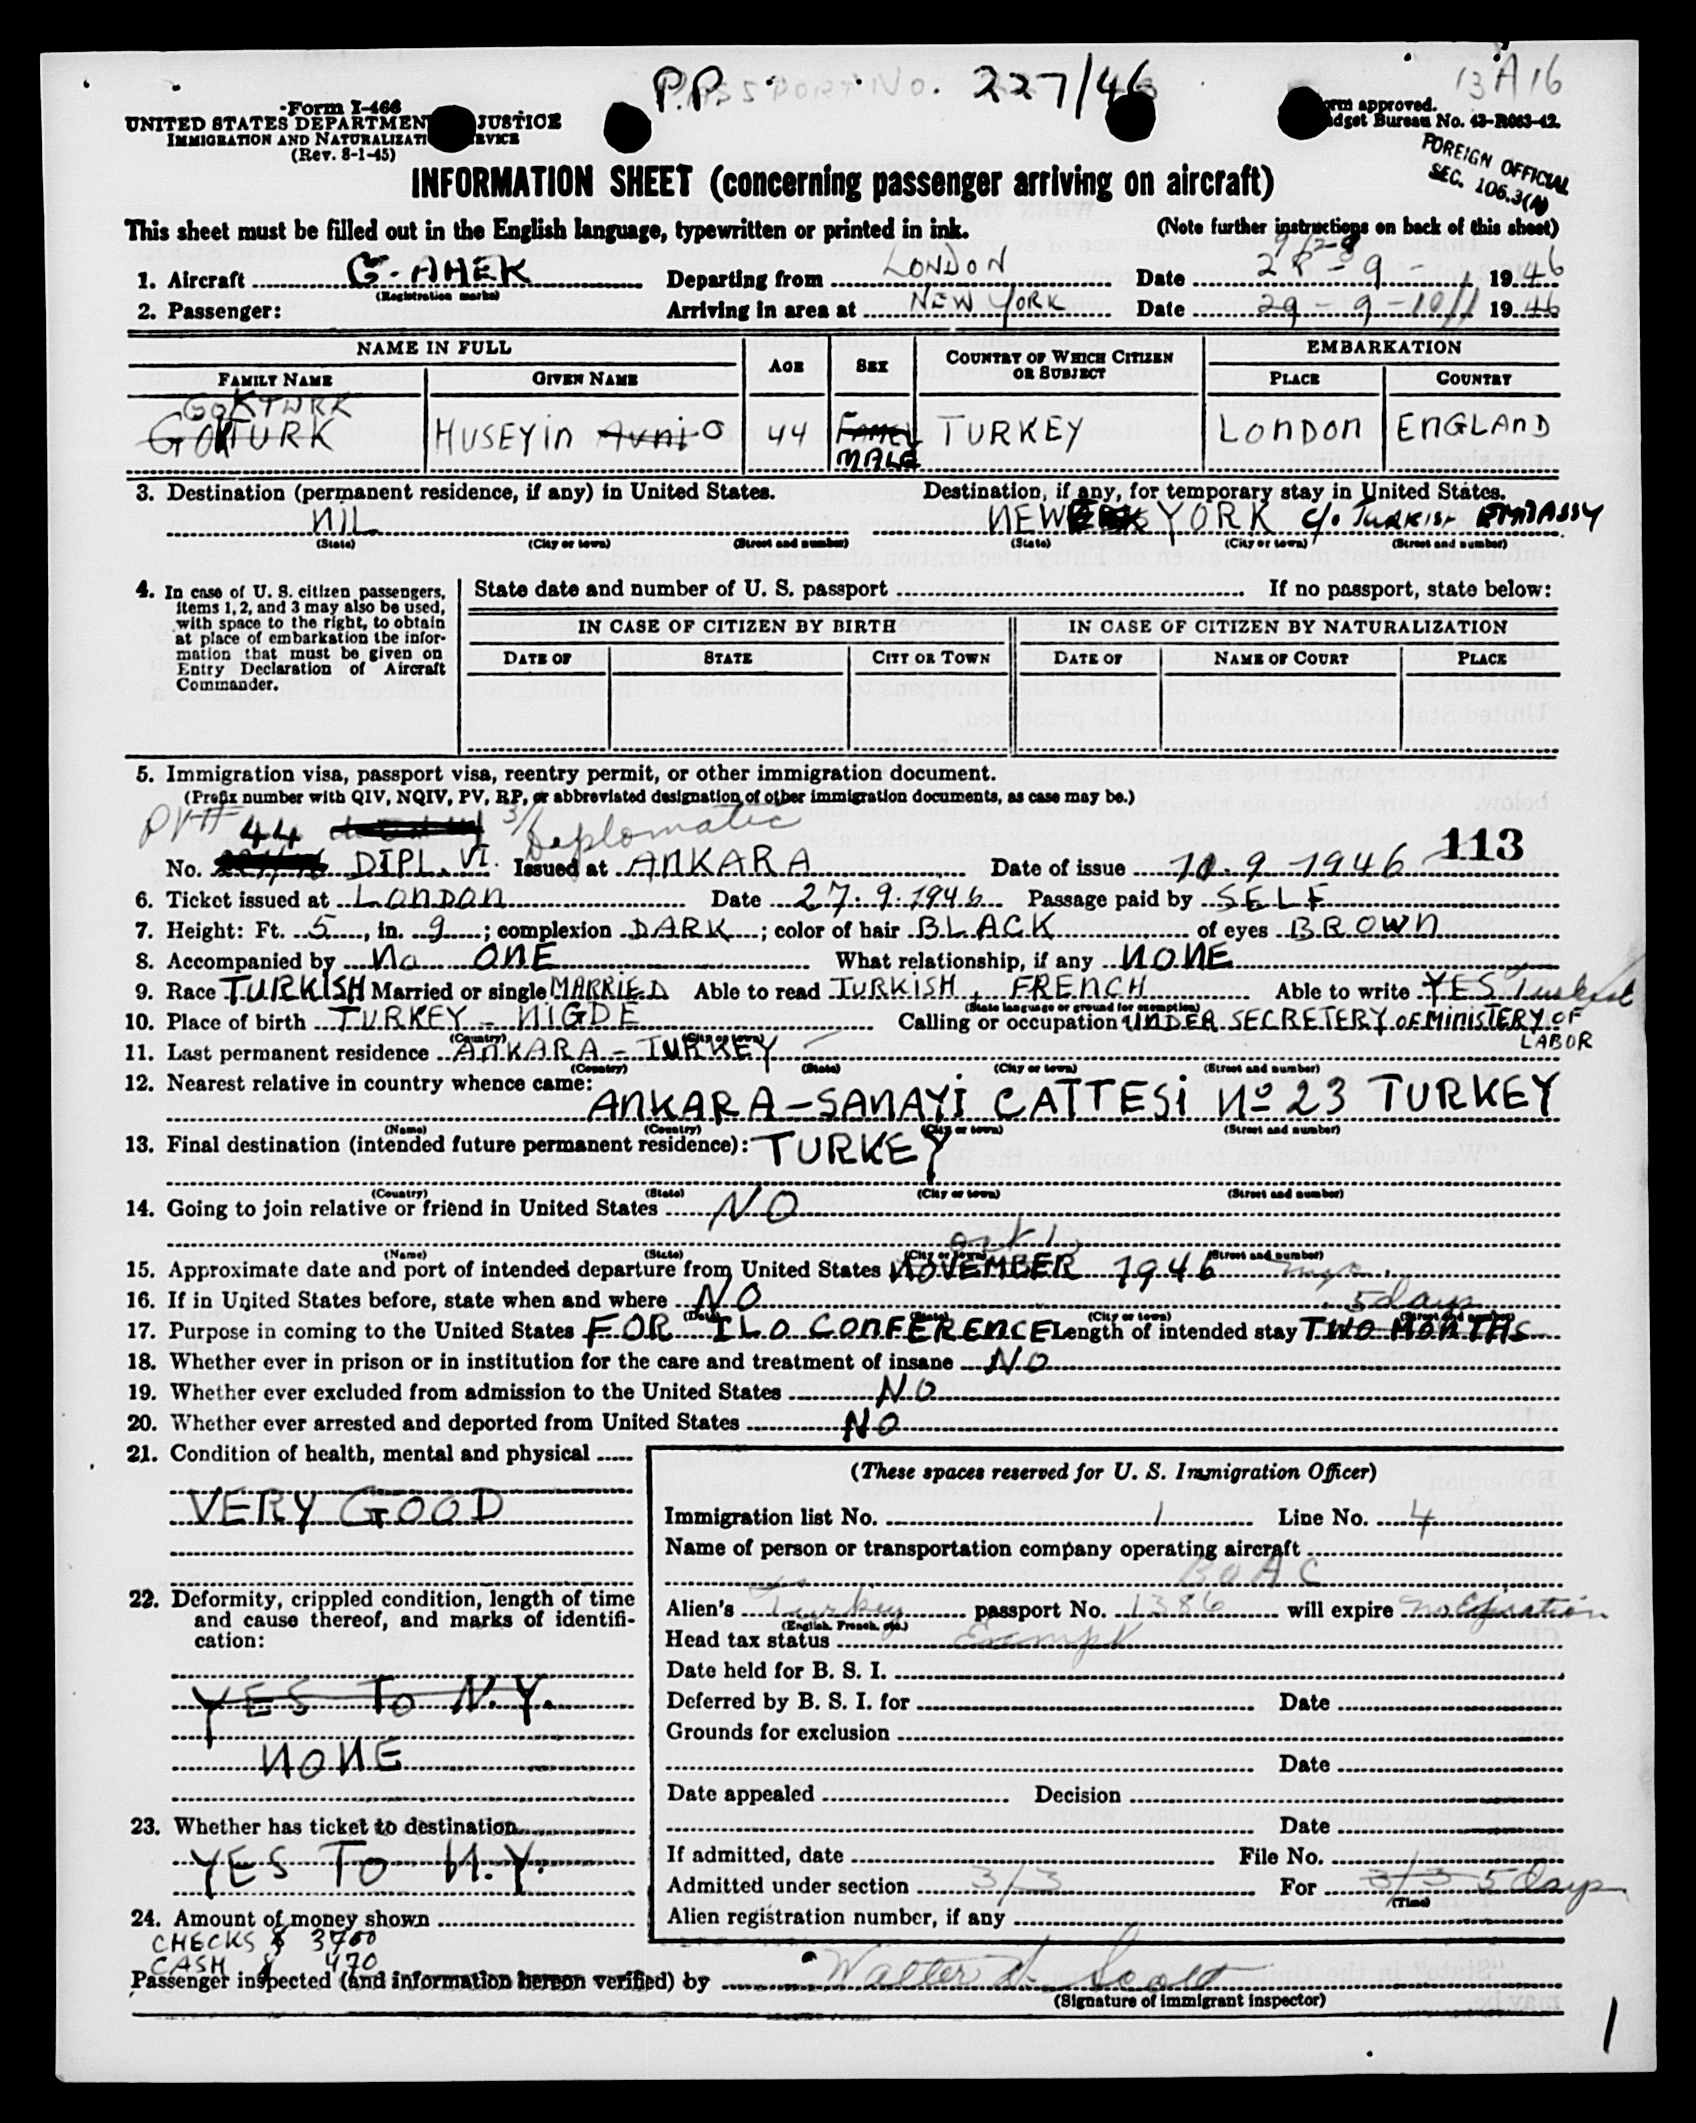 P.P. 227/46
13 A 16
Form I-466
UNITED STATES DEPARTMEN JUSTICE
IMMIGRATION AND NATURALIZATI RVICE
(Rev. 8-1-45)
rm approved.
dget Bureau No. 43-R063-42.
FOREIGN OFFICIAL
SEC. 106.3(A)
INFORMATION SHEET (concerning passenger arriving on aircraft)
This sheet must be filled out in the English language, typewritten or printed in ink. (Note further instructions on back of this sheet)
1. Aircraft G-AHEK Departing from LONDON Date 28-9- 1946
(Registration marks)
2. Passenger: Arriving in area at NEW YORK Date 29-9- 1946
NAME IN FULL AGE SEX COUNTRY OF WHICH CITIZEN OR SUBJECT EMBARKATION
FAMILY NAME GIVEN NAME PLACE COUNTRY
GOKTURK
GOKTURK HUSEYIN Avni 44 MALE TURKEY LONDON ENGLAND
3. Destination (permanent residence, if any) in United States. Destination, if any, for temporary stay in United States.
NIL NEW YORK c/o TURKISH EMBASSY
(State) (City or town) (Street and number) (State) (City or town) (Street and number)
4. In case of U. S. citizen passengers, items 1, 2, and 3 may also be used, with space to the right, to obtain at place of embarkation the information that must be given on Entry Declaration of Aircraft Commander.
State date and number of U. S. passport If no passport, state below:
IN CASE OF CITIZEN BY BIRTH IN CASE OF CITIZEN BY NATURALIZATION
DATE OF STATE CITY OR TOWN DATE OF NAME OF COURT PLACE
5. Immigration visa, passport visa, reentry permit, or other immigration document.
(Prefix number with QIV, NQIV, PV, RP, or abbreviated designation of other immigration documents, as case may be.)
PV# 44 3/1 Deplomatic
113
No. DIPL. VI. Issued at ANKARA Date of issue 10.9-1946
6. Ticket issued at LONDON Date 27.9.1946 Passage paid by SELF
7. Height: Ft. 5, in. 9; complexion DARK; color of hair BLACK of eyes BROWN
8. Accompanied by No ONE What relationship, if any NONE
9. Race TURKISH Married or single MARRIED Able to read TURKISH, FRENCH Able to write YES Turkish
(State language or ground for exemption)
10. Place of birth TURKEY - NIGDE Calling or occupation UNDER SECRETERY OF MINISTERY OF LABOR
(Country) (City or town)
11. Last permanent residence ANKARA - TURKEY
(Country) (State) (City or town) (Street and number)
12. Nearest relative in country whence came:
ANKARA-SANAYI CATTESI No 23 TURKEY
(Name) (Country) (City or town) (Street and number)
13. Final destination (intended future permanent residence): TURKEY
(Country) (State) (City or town) (Street and number)
14. Going to join relative or friend in United States NO
(Name) (State) (City or town) (Street and number)
15. Approximate date and port of intended departure from United States NOVEMBER 1946
16. If in United States before, state when and where NO
(Date) (State) (City or town) (Street and number)
5 days
17. Purpose in coming to the United States FOR ILO CONFERENCE Length of intended stay TWO MONTHS
18. Whether ever in prison or in institution for the care and treatment of insane NO
19. Whether ever excluded from admission to the United States NO
20. Whether ever arrested and deported from United States NO
21. Condition of health, mental and physical
VERY GOOD
22. Deformity, crippled condition, length of time and cause thereof, and marks of identification:
YES To N.Y.
NONE
23. Whether has ticket to destination
YES To N.Y.
24. Amount of money shown
CHECKS $ 3700
CASH $ 470
(These spaces reserved for U. S. Immigration Officer)
Immigration list No. 1 Line No. 4
Name of person or transportation company operating aircraft
BOAC
Alien's Turkey passport No. 1386 will expire
(English, French, etc.)
Head tax status Exempt
Date held for B. S. I.
Deferred by B. S. I. for Date
Grounds for exclusion
Date
Date appealed Decision
Date
If admitted, date File No.
Admitted under section 3/3 For 3/3 5 days
(Time)
Alien registration number, if any
Passenger inspected (and information hereon verified) by Walter N. Scott
(Signature of immigrant inspector)
1